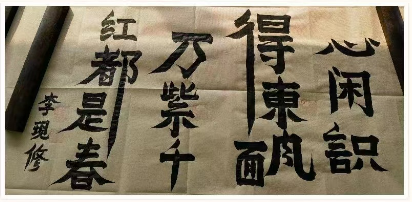 心闲识
得東风面
万紫千
红都是春
李現修